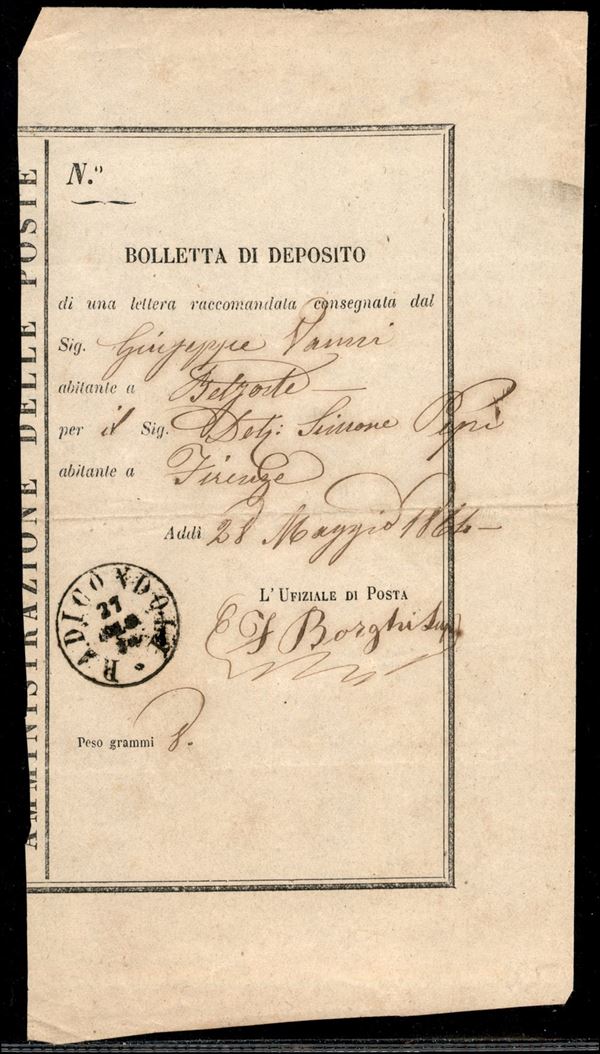 AMMINISTRAZIONE DELLE POSTE
N.º
BOLLETTA DI DEPOSITO
di una lettera raccomandata consegnata dal
Sig. Giuseppe Vanni
abitante a Belforte
per il Sig. Simone Pepi
abitante a Firenze
Addì 28 Maggio 1864
L'UFIZIALE DI POSTA
F Borghi
RADICONDOLI
Peso grammi 8.